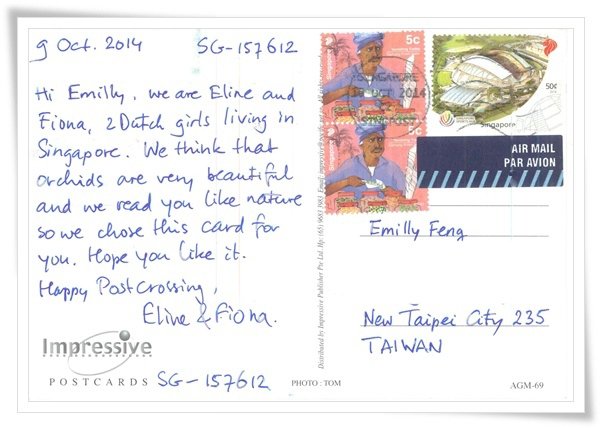 9 Oct. 2014 SG-157612
Hi Emilly, we are Eline and
Fiona, 2 Dutch girls living in
Singapore. We think that
orchids are very beautiful
and we read you like nature
so we chose this card for
you. Hope you like it.
Happy Postcrossing,
Eline & Fiona.
Impressive
POSTCARDS SG-157612
PHOTO: TOM
AGM-69
Distributed by Impressive Publisher Pte Ltd. Hp: (65) 9683 1983
5c
Singapore
5c
Singapore
50¢
Singapore
SINGAPORE
2014
AIR MAIL
PAR AVION
Emilly Feng
New Taipei City 235
TAIWAN